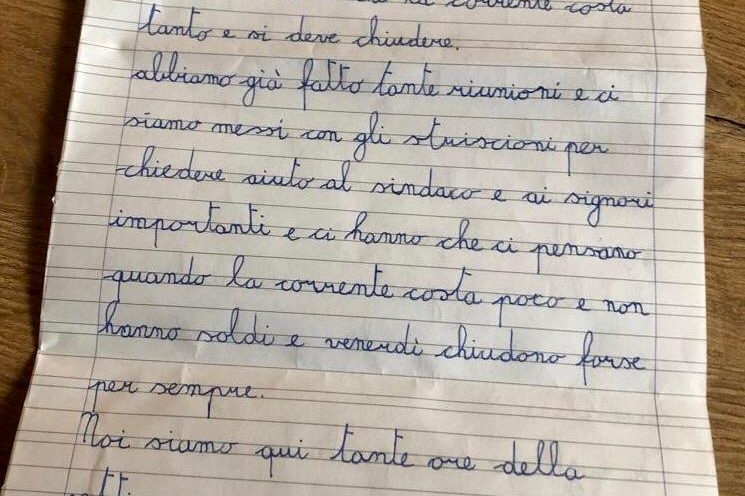 la corrente costa
tanto e si deve chiudere.
abbiamo già fatto tante riunioni e ci
siamo messi con gli struiscioni per
chiedere aiuto al sindaco e ai signori
importanti e ci hanno che ci pensano
quando la corrente costa poco e non
hanno soldi e venerdì chiudono forse
per sempre.
Noi siamo qui tante ore della